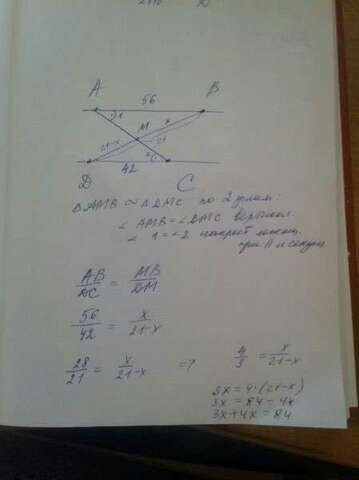 A 56 B
1
M x
21-x 21
2
42
D C
△AMB ∾ △DMC по 2 углам:
∠ AMB = ∠ DMC вертикал.
∠ 1 = ∠2 накрест лежащ.
при || и секущ.
AB/DC = MB/DM
56/42 = x/21-x
28/21 = x/21-x => 4/3 = x/21-x
3x = 4·(21-x)
3x = 84 - 4x
3x+4x = 84